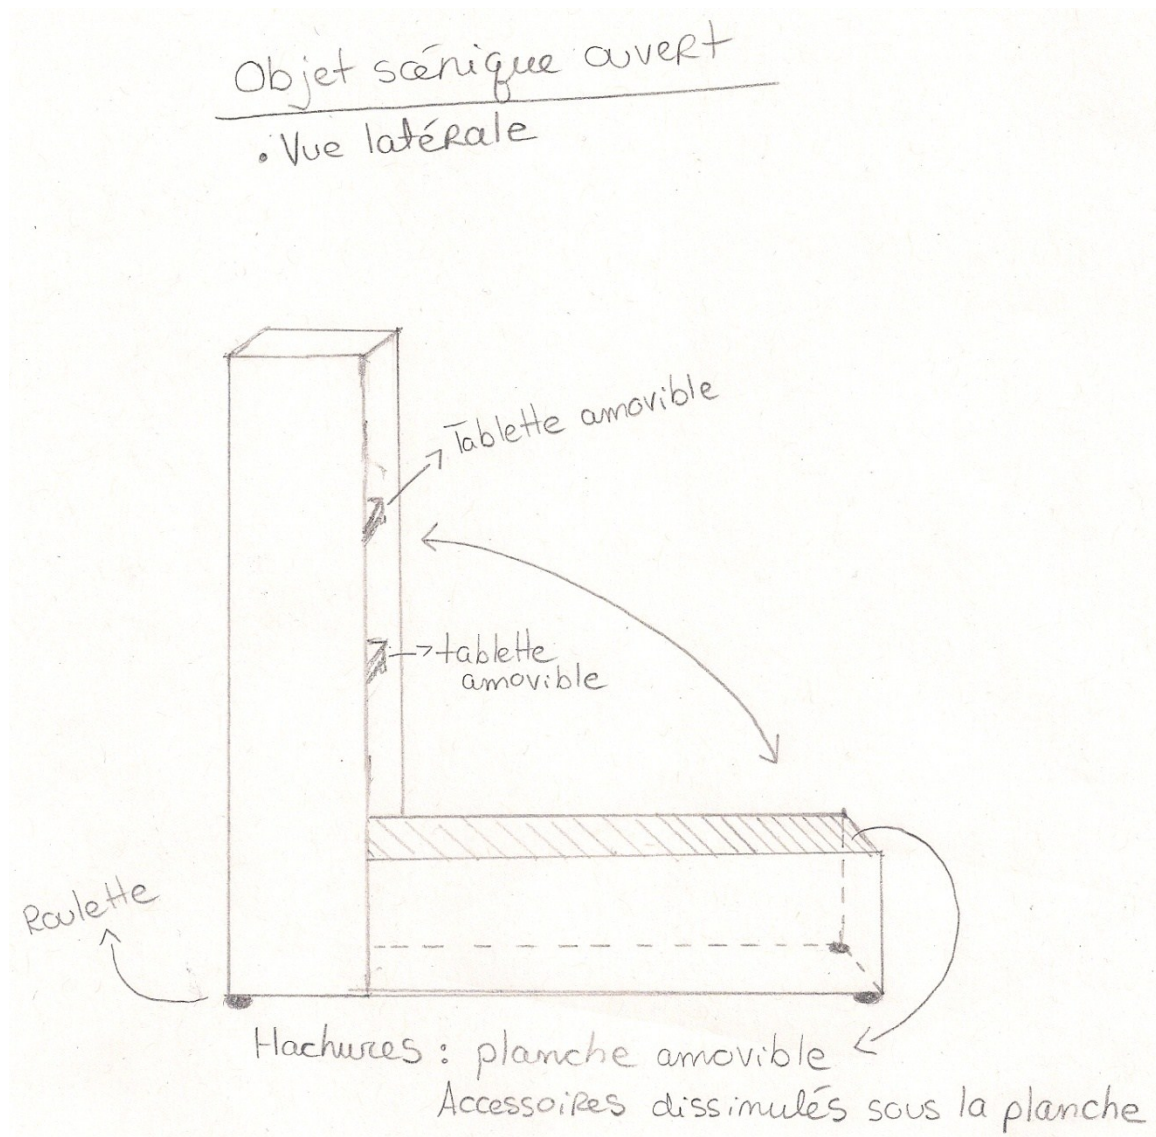 Objet scénique ouvert
• Vue latérale
Tablette amovible
→ tablette
amovible
Roulette
Hachures : planche amovible
Accessoires dissimulés sous la planche